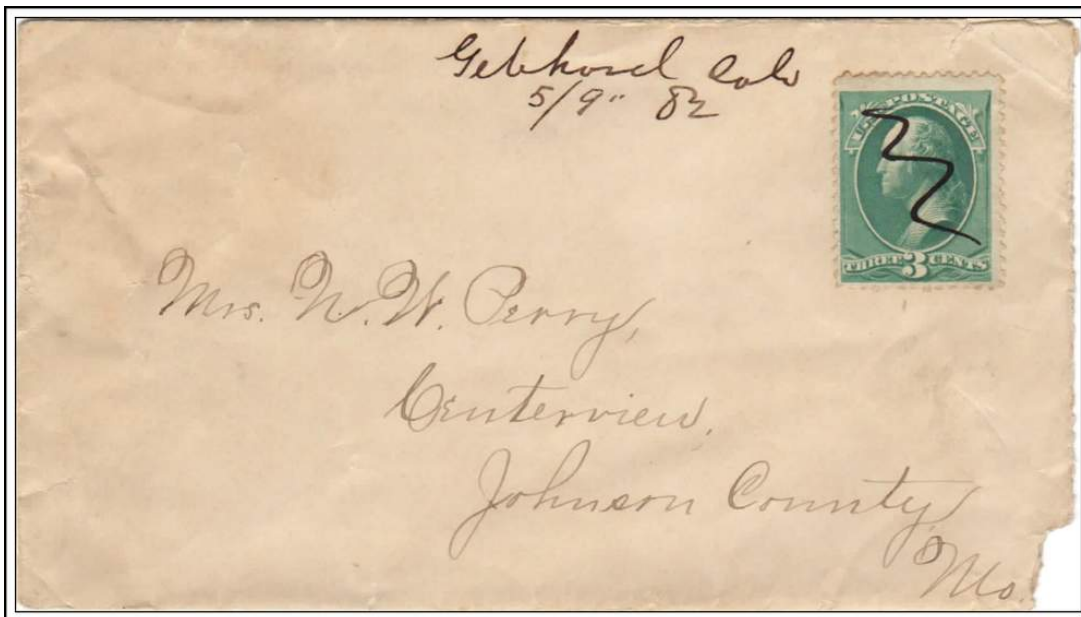 Gebhard Colo
5/9" 82
U.S. POSTAGE
THREE 3 CENTS
Mrs. N. W. Perry,
Centerview,
Johnson County,
Mo.